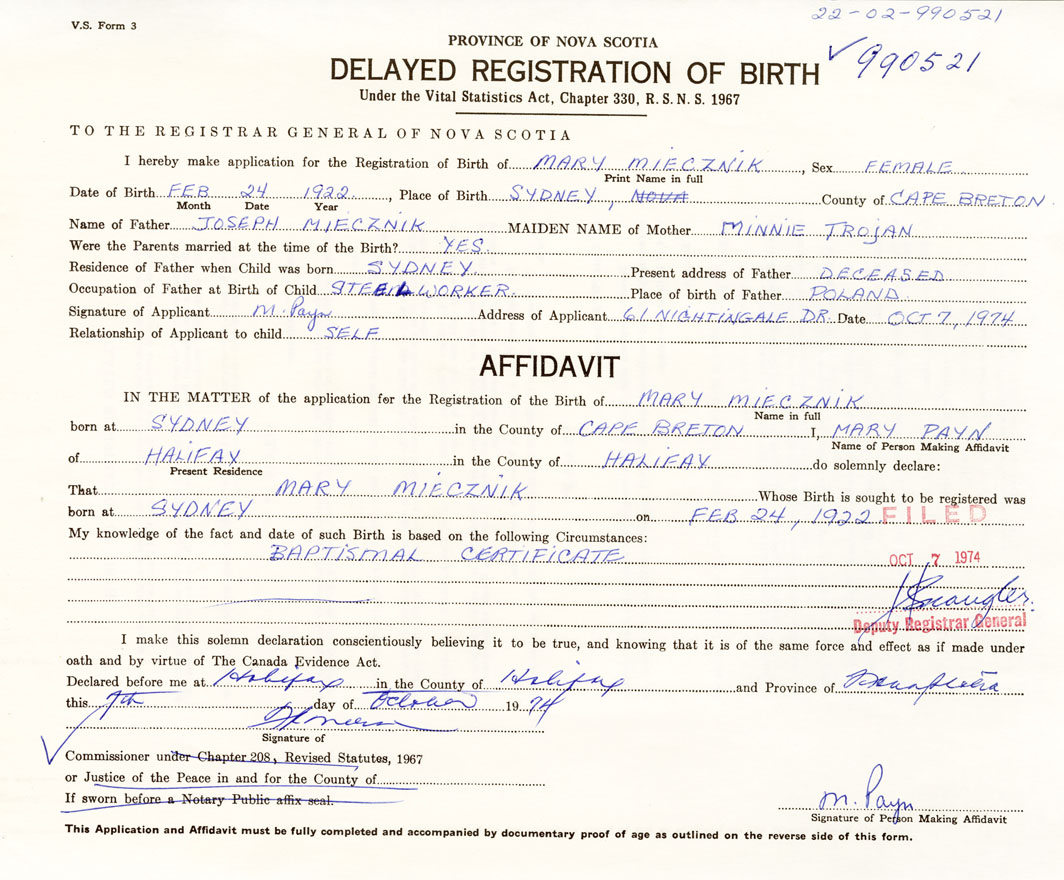 22-02-990521
V.S. Form 3
PROVINCE OF NOVA SCOTIA
✓ 990521
DELAYED REGISTRATION OF BIRTH
Under the Vital Statistics Act, Chapter 330, R.S.N.S. 1967
TO THE REGISTRAR GENERAL OF NOVA SCOTIA
I hereby make application for the Registration of Birth of MARY MIECZNIK, Sex FEMALE
Print Name in full
Date of Birth FEB 24 1922, Place of Birth SYDNEY, NOVA County of CAPE BRETON
Month Date Year
Name of Father JOSEPH MIECZNIK MAIDEN NAME of Mother MINNIE TROJAN
Were the Parents married at the time of the Birth? YES
Residence of Father when Child was born SYDNEY Present address of Father DECEASED
Occupation of Father at Birth of Child STEEL WORKER Place of birth of Father POLAND
Signature of Applicant M. Payn Address of Applicant 61 NIGHTINGALE DR. Date OCT 7, 1974
Relationship of Applicant to child SELF
AFFIDAVIT
IN THE MATTER of the application for the Registration of the Birth of MARY MIECZNIK
Name in full
born at SYDNEY in the County of CAPE BRETON I, MARY PAYN
Name of Person Making Affidavit
of HALIFAX in the County of HALIFAX do solemnly declare:
Present Residence
That MARY MIECZNIK Whose Birth is sought to be registered was
born at SYDNEY on FEB 24, 1922 FILED
My knowledge of the fact and date of such Birth is based on the following Circumstances:
BAPTISMAL CERTIFICATE
OCT 7 1974
Deputy Registrar General
I make this solemn declaration conscientiously believing it to be true, and knowing that it is of the same force and effect as if made under
oath and by virtue of The Canada Evidence Act.
Declared before me at Halifax in the County of Halifax and Province of Nova Scotia
this 7th day of October 1974
Signature of
✓ Commissioner under Chapter 208, Revised Statutes, 1967
or Justice of the Peace in and for the County of
If sworn before a Notary Public affix seal.
M. Payn
Signature of Person Making Affidavit
This Application and Affidavit must be fully completed and accompanied by documentary proof of age as outlined on the reverse side of this form.